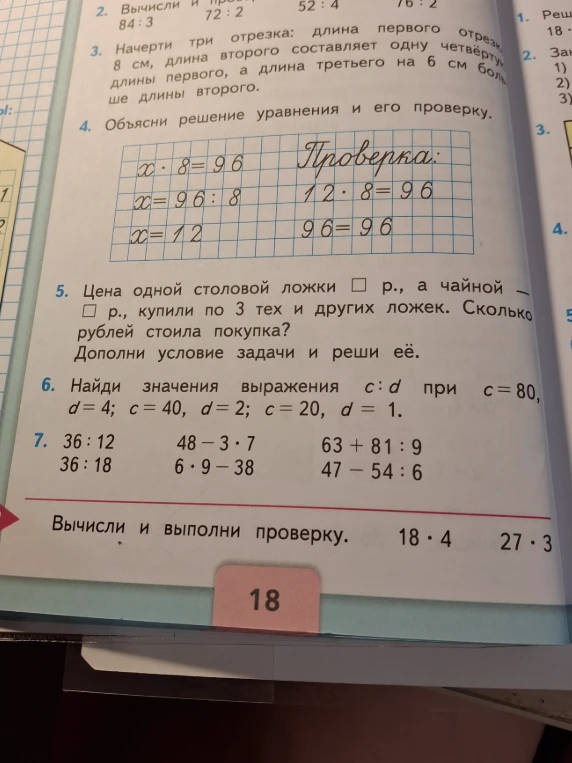 2. Вычисли и
84 : 3 72 : 2 52 : 4 76 : 2
3. Начерти три отрезка: длина первого отрезка
8 см, длина второго составляет одну четвёртую
длины первого, а длина третьего на 6 см боль
ше длины второго.
4. Объясни решение уравнения и его проверку.
x · 8 = 96 Проверка:
x = 96 : 8 12 · 8 = 96
x = 12 96 = 96
5. Цена одной столовой ложки □ р., а чайной —
□ р., купили по 3 тех и других ложек. Сколько
рублей стоила покупка?
Дополни условие задачи и реши её.
6. Найди значения выражения c : d при c = 80,
d = 4; c = 40, d = 2; c = 20, d = 1.
7. 36 : 12 48 – 3 · 7 63 + 81 : 9
36 : 18 6 · 9 – 38 47 – 54 : 6
Вычисли и выполни проверку. 18 · 4 27 · 3
18
1.
18 ·
2.
1)
2)
3)
3.
4.